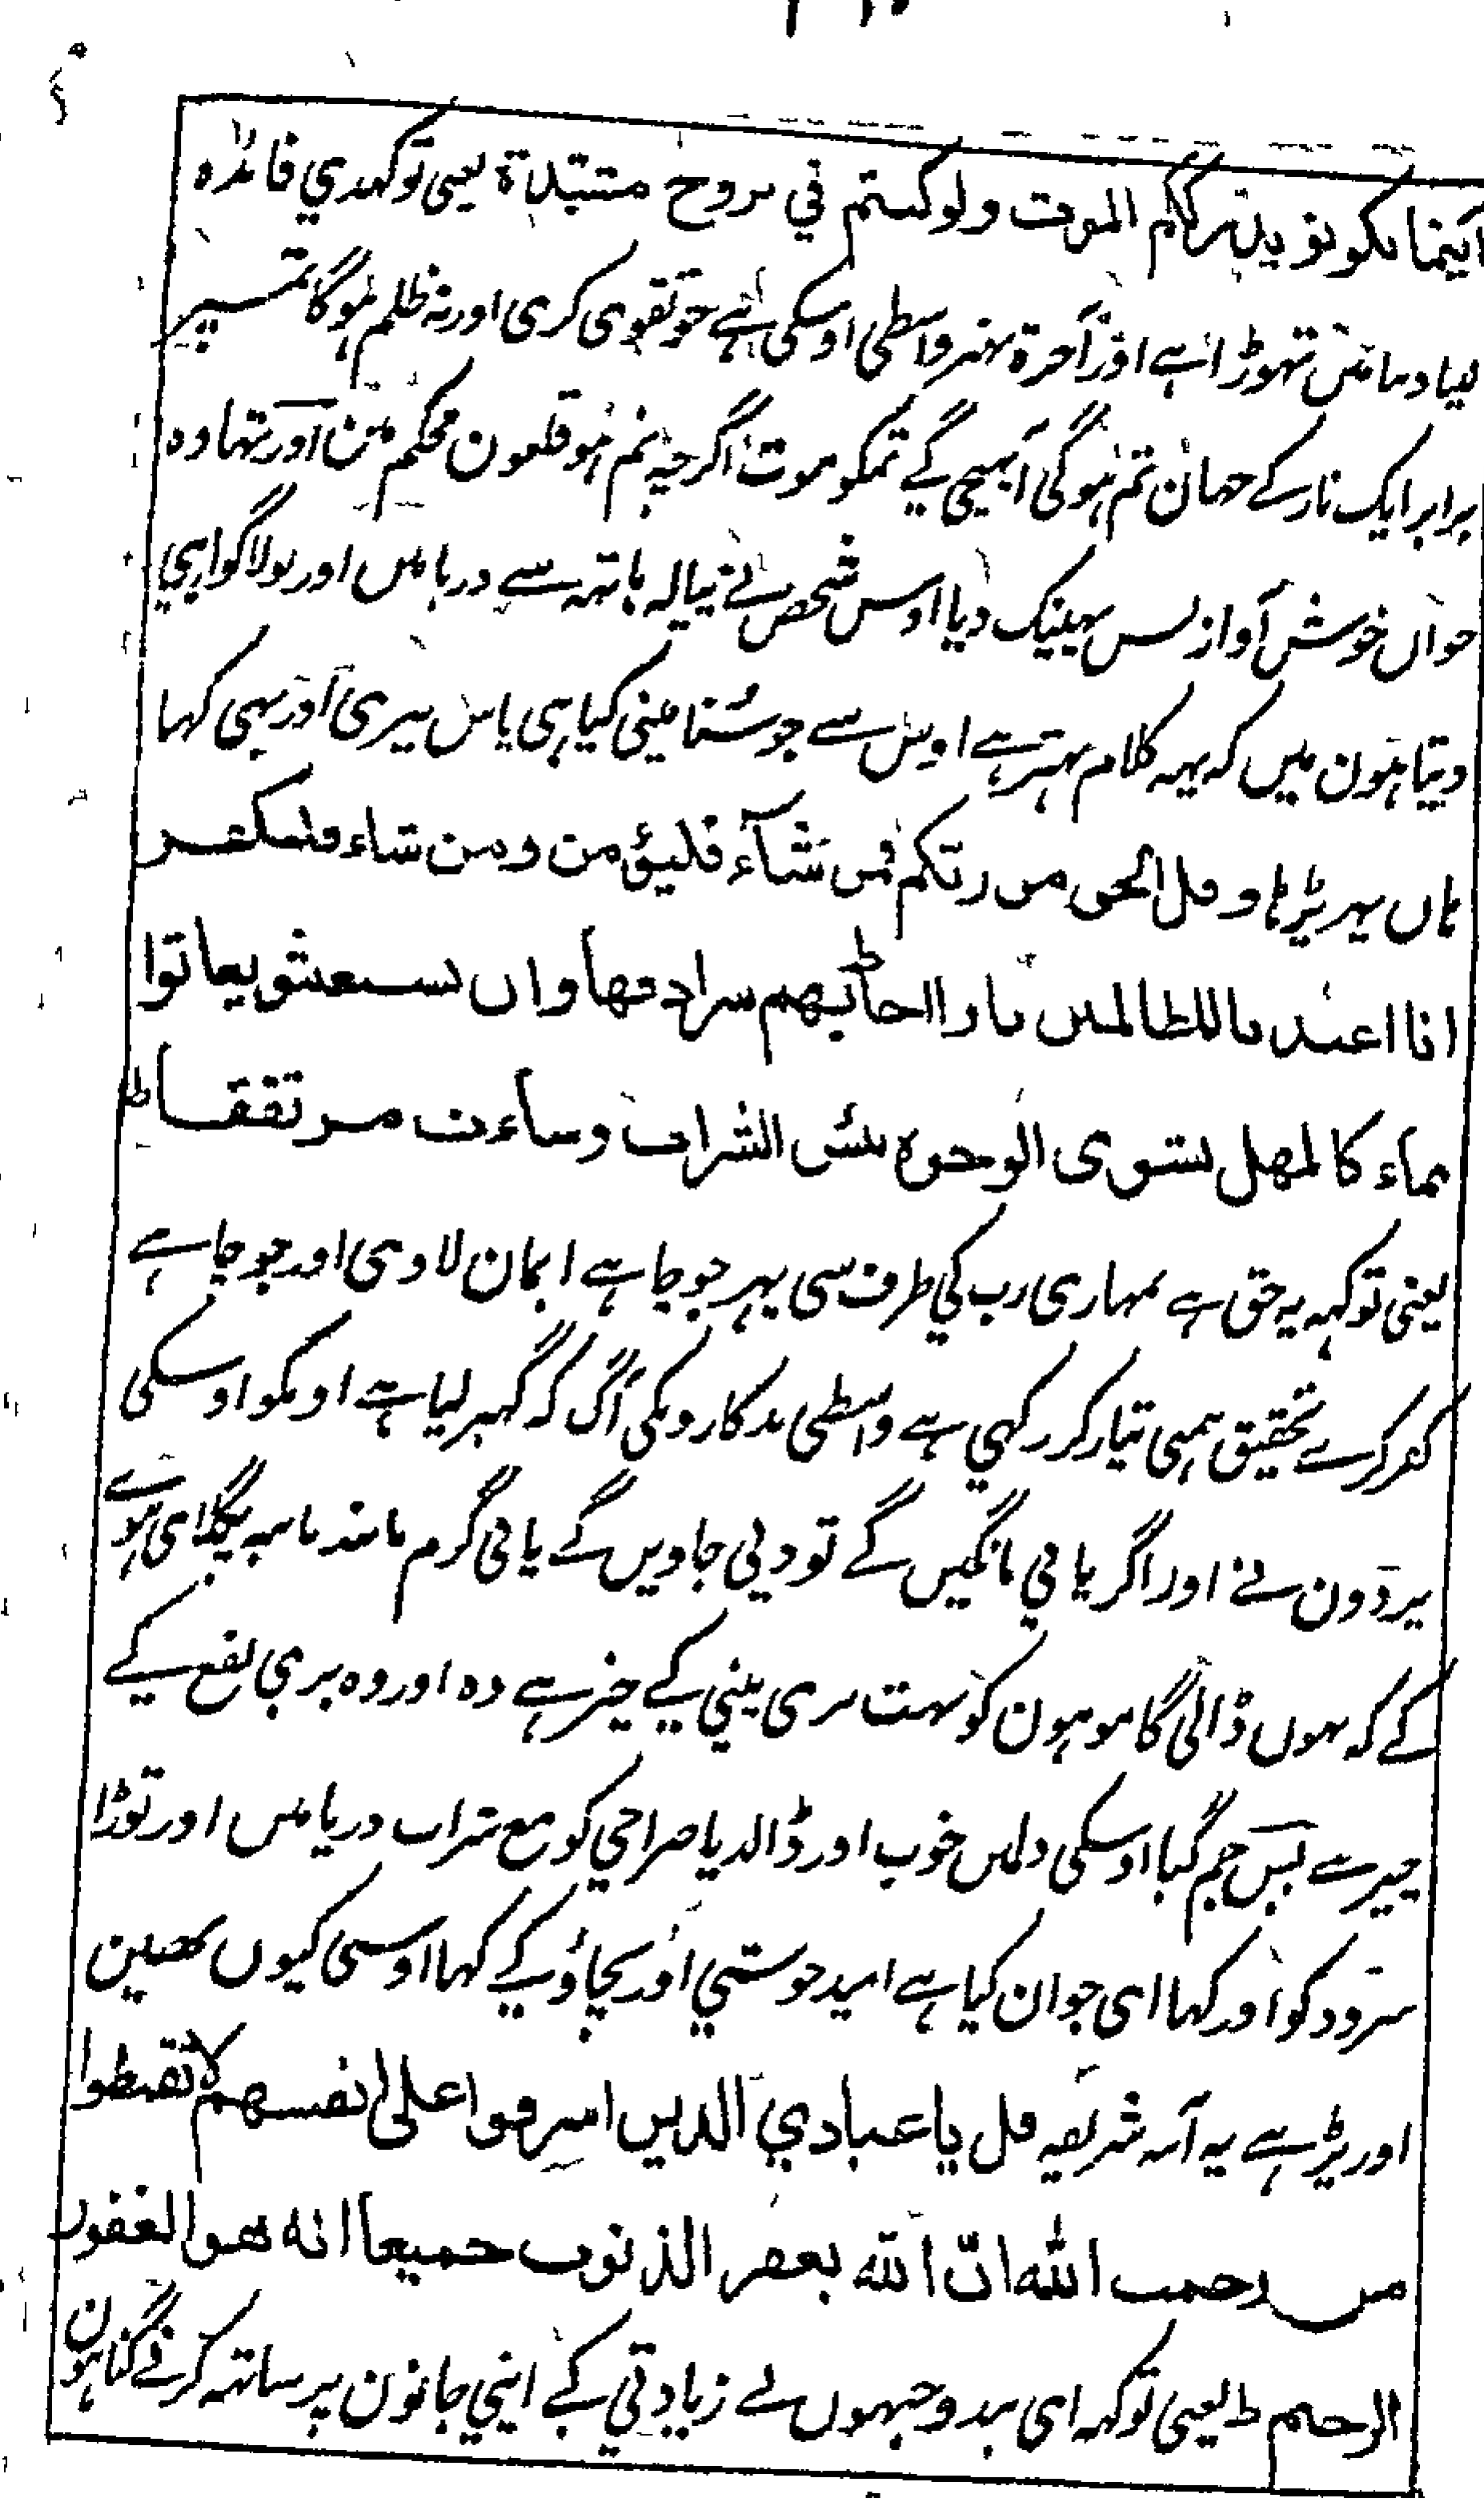 اینما تکونو یدرککم الموت ولو کنتم فی بروج مشیدة یعنی تو کهدي فائدہ
لیا دنیا مین تہوڑا ہے اور آخرة بہتر واسطی اوسکی ہے جو تقوی کری اور نہ ظلم ہوگا تمپر
برابر ایک تار کے جہان تم ہوگی آپہنچی گے تمکو موت اگرچہ تم ہو قلعون محکم مین اور تہا وہ
جوان خوش آواز پس پھینک دیا اوس شخص نے پیالہ ہاتہہ سے دریا میں اور بولا گواہی
دیتا ہون میں کہ یہہ کلام بہتر ہے اوس سے جو سُنا مینی کیا ہی پاس تیری اور بہی کہا
ہاں پہر پڑہا وقل الحق من ربکم فمن شآء فلیؤمن ومن شاء فلیکفر
انا اعتدنا للظالمین نارا احاط بهم سرادقها وان یستغیثو یغاثوا
بماء کالمهل یشوی الوجوه بئس الشراب وساءت مرتفقا ط
یعنی تو کہہ یہ حق ہے تمہاری رب کی طرف سی پہر جو چاہے ایمان لاوی اور جو چاہے
کفر کرے تحقیق ہمنی تیار کر رکهی ہے واسطی بدکارونکی آگ کہ گہیر لیا ہے اونکو اوسکی
پردون نے اور اگر پانی مانگیں گے تو دیی جاویں گے پانی گرم مانند تانبہ پگلای ہوے
کے کہ بہون ڈالی گا مونہون کو بہت بری پینی کے چیز ہے وہ اور وہ بری نفع کے
چیز ہے بس جم گیا اوسکی دلمیں خوب اور ڈالدیا صراحی کو مع شراب دریا میں اور توڑا
سرود کو اور کہا ای جوان کیا ہے امید خوشی اور بچاؤ کے کہا اوسی کیوں نہین
اور پڑہے یہ آیہ شریفہ قل یا عبادي الذین اسرفوا علی انفسهم لا تقنطوا
من رحمت الله انّ الله یغفر الذنوب جمیعا انه هو الغفور
الرحیم ط یعنی تو کہہ ای بندو جنہوں نے زیادتی کے اپنی جانون پر ساتہہ کرنے گناہون